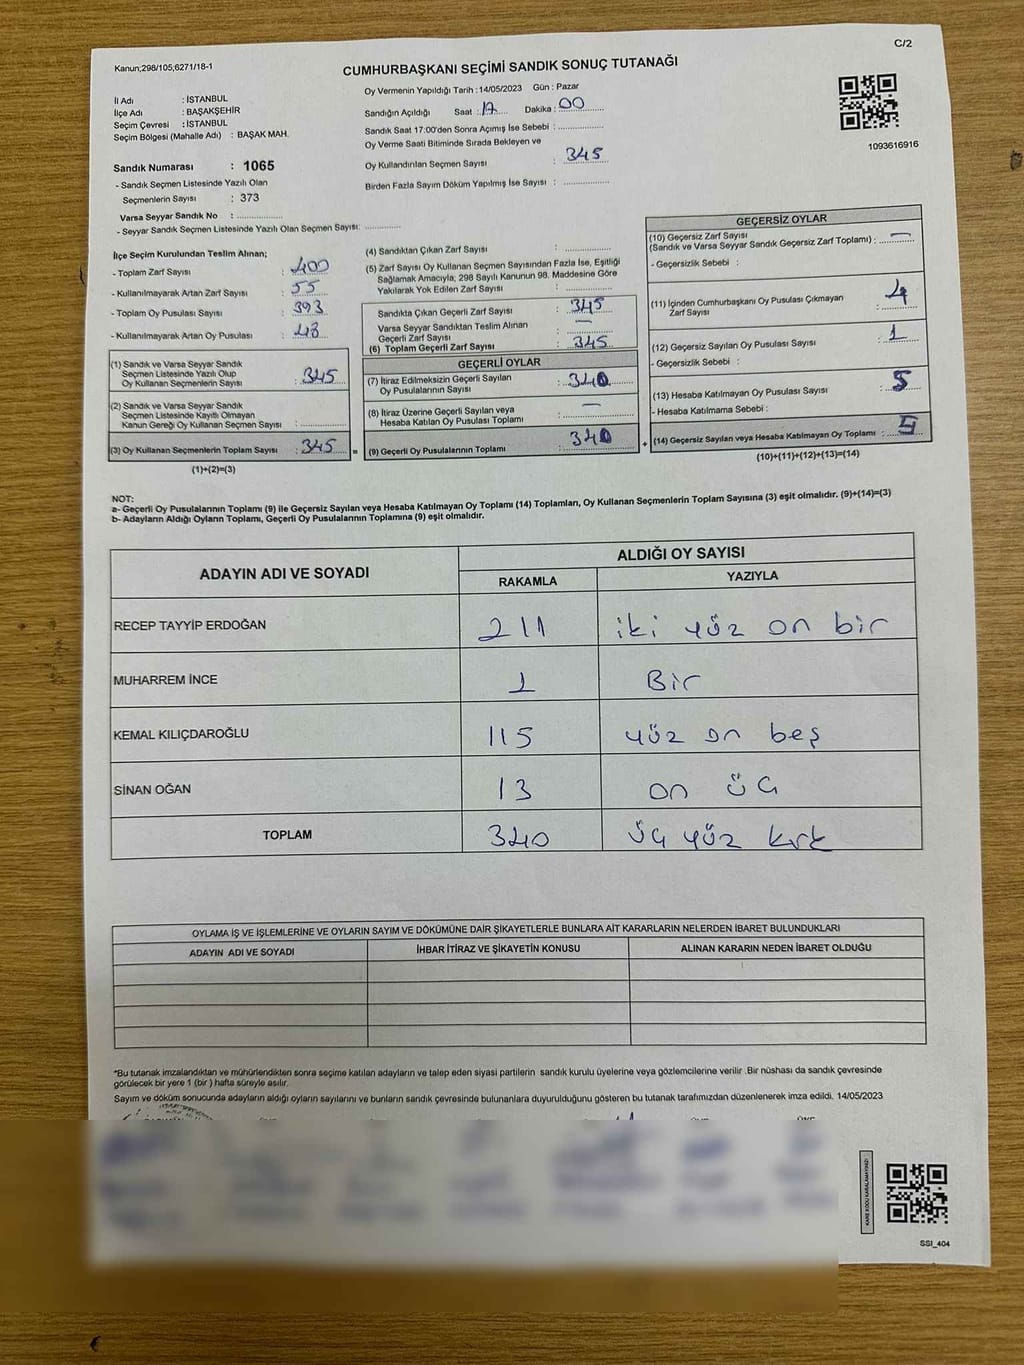 C/2
Kanun;298/105;6271/18-1
CUMHURBAŞKANI SEÇİMİ SANDIK SONUÇ TUTANAĞI
İl Adı : İSTANBUL
İlçe Adı : BAŞAKŞEHİR
Seçim Çevresi : İSTANBUL
Seçim Bölgesi (Mahalle Adı) : BAŞAK MAH.
Oy Vermenin Yapıldığı Tarih :14/05/2023 Gün : Pazar
Sandığın Açıldığı Saat : 17 Dakika : 00
Sandık Saat 17:00'den Sonra Açımış İse Sebebi :
Oy Verme Saati Bitiminde Sırada Bekleyen ve
Oy Kullandırılan Seçmen Sayısı : 345
Birden Fazla Sayım Döküm Yapılmış İse Sayısı :
1093616916
Sandık Numarası : 1065
- Sandık Seçmen Listesinde Yazılı Olan
Seçmenlerin Sayısı : 373
Varsa Seyyar Sandık No :
- Seyyar Sandık Seçmen Listesinde Yazılı Olan Seçmen Sayısı:
İlçe Seçim Kurulundan Teslim Alınan;
- Toplam Zarf Sayısı : 400
- Kullanılmayarak Artan Zarf Sayısı : 55
- Toplam Oy Pusulası Sayısı : 393
- Kullanılmayarak Artan Oy Pusulası : 48
(1) Sandık ve Varsa Seyyar Sandık
Seçmen Listesinde Yazılı Olup
Oy Kullanan Seçmenlerin Sayısı : 345
(2) Sandık ve Varsa Seyyar Sandık
Seçmen Listesinde Kayıtlı Olmayan
Kanun Gereği Oy Kullanan Seçmen Sayısı :
(3) Oy Kullanan Seçmenlerin Toplam Sayısı : 345
(1)+(2)=(3)
(4) Sandıktan Çıkan Zarf Sayısı :
(5) Zarf Sayısı Oy Kullanan Seçmen Sayısından Fazla İse, Eşitliği
Sağlamak Amacıyla; 298 Sayılı Kanunun 98. Maddesine Göre
Yakılarak Yok Edilen Zarf Sayısı :
Sandıkta Çıkan Geçerli Zarf Sayısı : 345
Varsa Seyyar Sandıktan Teslim Alınan
Geçerli Zarf Sayısı : —
(6) Toplam Geçerli Zarf Sayısı : 345
GEÇERLİ OYLAR
(7) İtiraz Edilmeksizin Geçerli Sayılan
Oy Pusulalarının Sayısı : 340
(8) İtiraz Üzerine Geçerli Sayılan veya
Hesaba Katılan Oy Pusulası Toplamı : —
(9) Geçerli Oy Pusulalarının Toplamı : 340
GEÇERSİZ OYLAR
(10) Geçersiz Zarf Sayısı
(Sandık ve Varsa Seyyar Sandık Geçersiz Zarf Toplamı) : —
- Geçersizlik Sebebi :
(11) İçinden Cumhurbaşkanı Oy Pusulası Çıkmayan
Zarf Sayısı : 4
(12) Geçersiz Sayılan Oy Pusulası Sayısı : 1
- Geçersizlik Sebebi :
(13) Hesaba Katılmayan Oy Pusulası Sayısı : 5
- Hesaba Katılmama Sebebi :
(14) Geçersiz Sayılan veya Hesaba Katılmayan Oy Toplamı : 5
(10)+(11)+(12)+(13)=(14)
NOT:
a- Geçerli Oy Pusulalarının Toplamı (9) ile Geçersiz Sayılan veya Hesaba Katılmayan Oy Toplamı (14) Toplamları, Oy Kullanan Seçmenlerin Toplam Sayısına (3) eşit olmalıdır. (9)+(14)=(3)
b- Adayların Aldığı Oyların Toplamı, Geçerli Oy Pusulalarının Toplamına (9) eşit olmalıdır.
ADAYIN ADI VE SOYADI ALDIĞI OY SAYISI
RAKAMLA YAZIYLA
RECEP TAYYİP ERDOĞAN 211 iki yüz on bir
MUHARREM İNCE 1 Bir
KEMAL KILIÇDAROĞLU 115 yüz on beş
SİNAN OĞAN 13 on üç
TOPLAM 340 üç yüz kırk
OYLAMA İŞ VE İŞLEMLERİNE VE OYLARIN SAYIM VE DÖKÜMÜNE DAİR ŞİKAYETLERLE BUNLARA AİT KARARLARIN NELERDEN İBARET BULUNDUKLARI
ADAYIN ADI VE SOYADI İHBAR İTİRAZ VE ŞİKAYETİN KONUSU ALINAN KARARIN NEDEN İBARET OLDUĞU
*Bu tutanak imzalandıktan ve mühürlendikten sonra seçime katılan adayların ve talep eden siyasi partilerin sandık kurulu üyelerine veya gözlemcilerine verilir .Bir nüshası da sandık çevresinde
görülecek bir yere 1 (bir ) hafta süreyle asılır.
Sayım ve döküm sonucunda adayların aldığı oyların sayılarını ve bunların sandık çevresinde bulunanlara duyurulduğunu gösteren bu tutanak tarafımızdan düzenlenerek imza edildi. 14/05/2023
KARE KODU KARALAMAYINIZ!
SSI_404